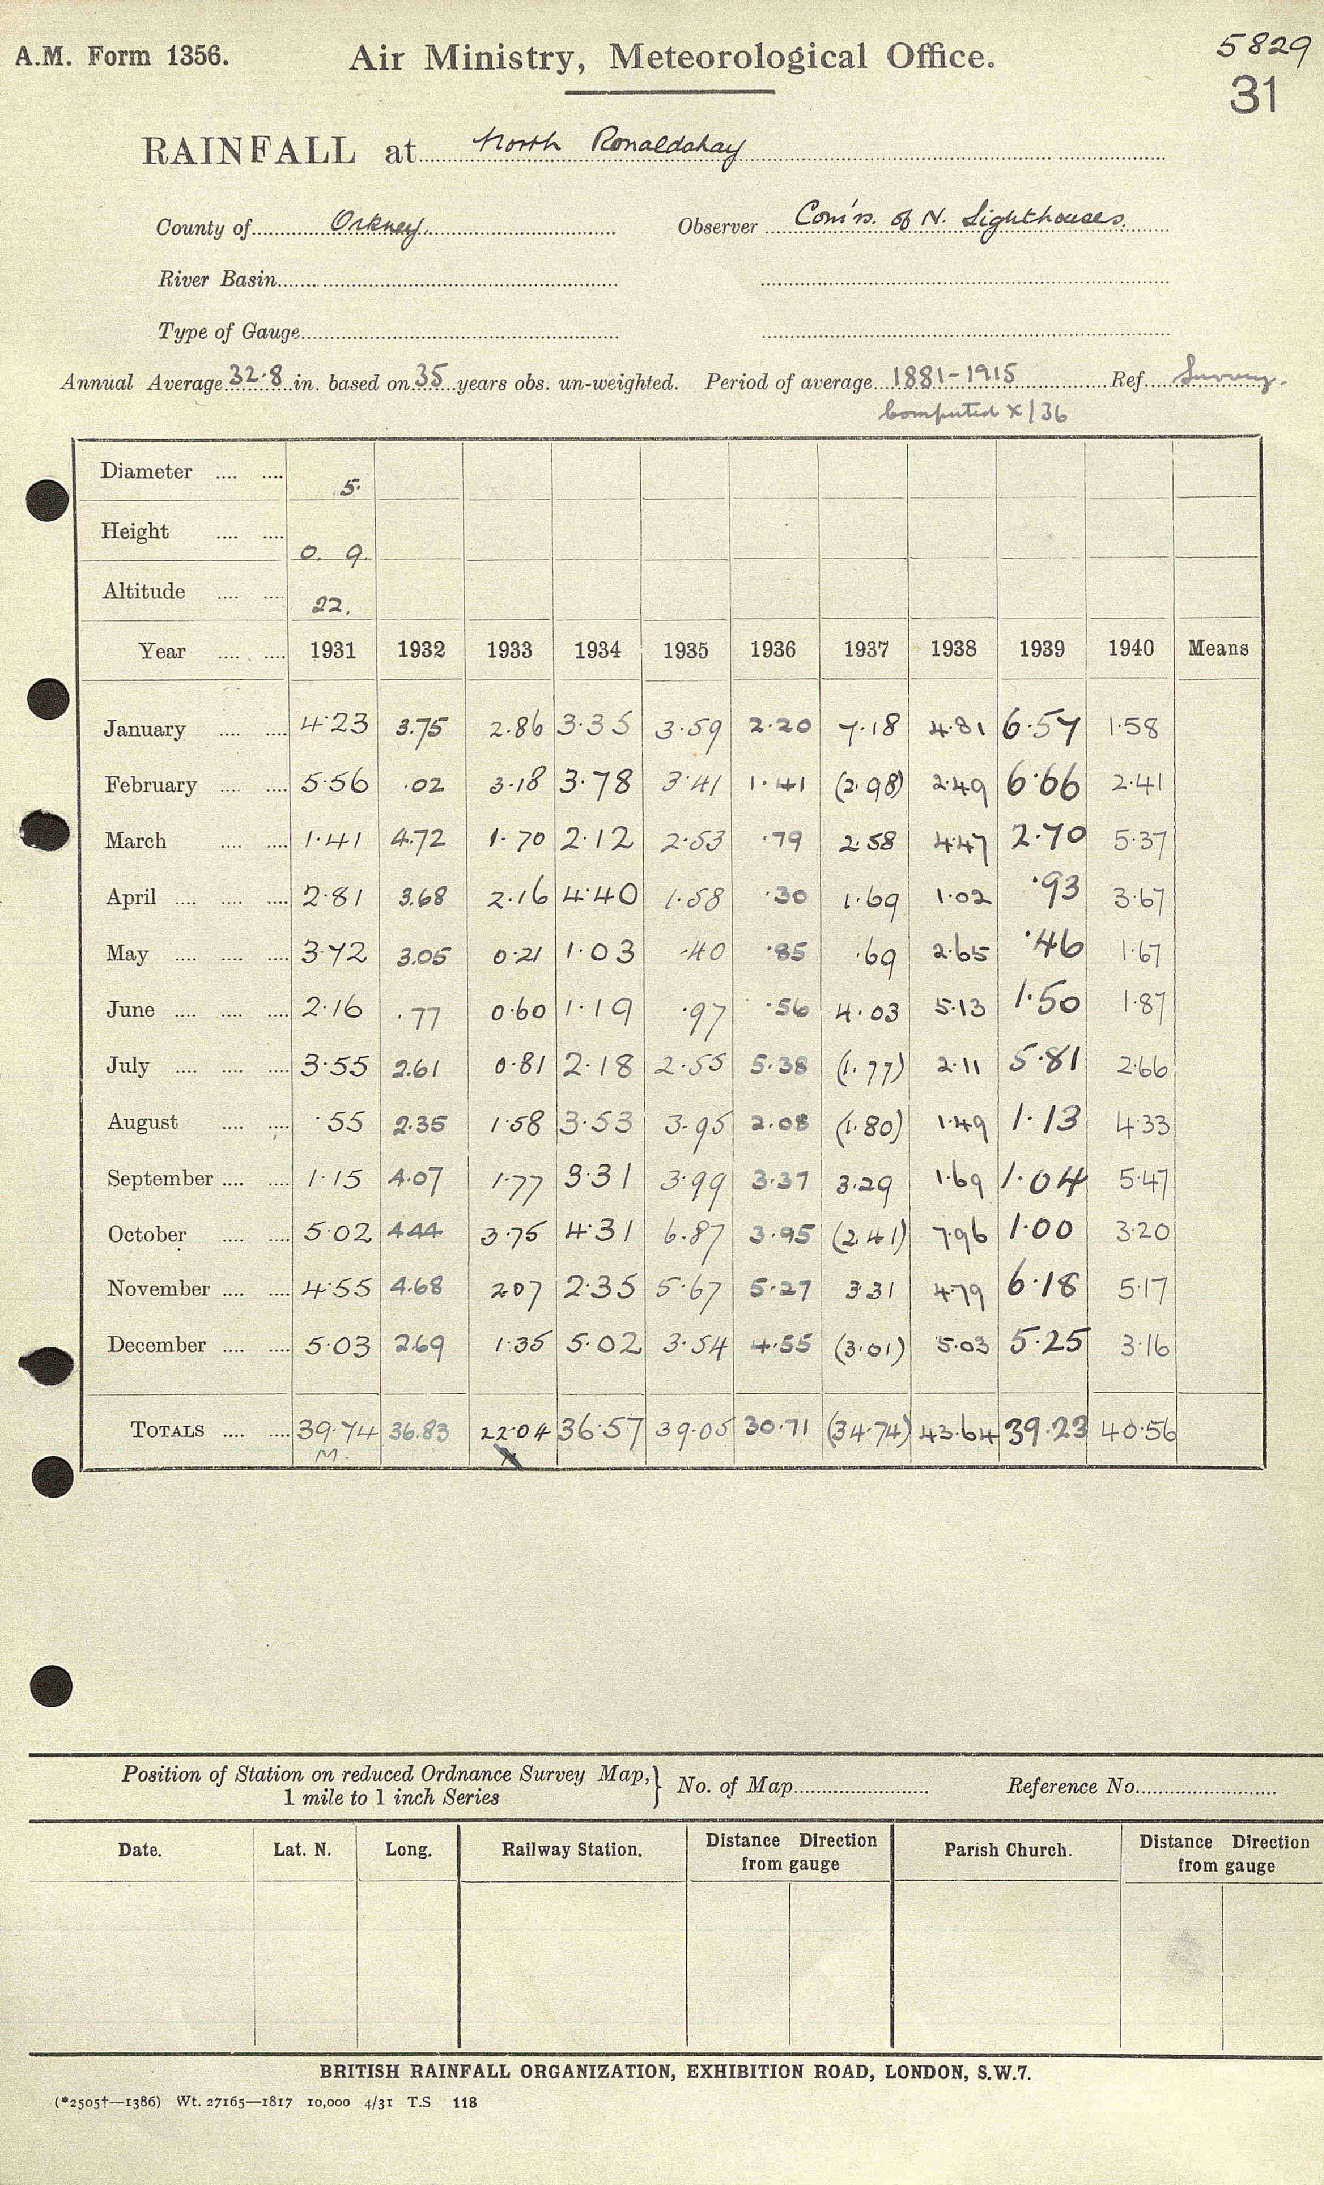 A.M. Form 1356. Air Ministry, Meteorological Office. 5829
31
RAINFALL at North Ronaldshay
County of Orkney. Observer Com'rs. of N. Lighthouses.
River Basin
Type of Gauge
Annual Average 32.8 in. based on 35 years obs. un-weighted. Period of average 1881-1915 Ref. Survey.
Computed x/36
Diameter 5.
Height 0. 9
Altitude 22.
Year 1931 1932 1933 1934 1935 1936 1937 1938 1939 1940 Means
January 4.23 3.75 2.86 3.35 3.59 2.20 7.18 4.81 6.57 1.58
February 5.56 .02 3.18 3.78 3.41 1.41 (2.98) 2.49 6.66 2.41
March 1.41 4.72 1.70 2.12 2.53 .79 2.58 4.47 2.70 5.37
April 2.81 3.68 2.16 4.40 1.58 .30 1.69 1.02 .93 3.67
May 3.72 3.05 0.21 1.03 .40 .85 .69 2.65 .46 1.67
June 2.16 .77 0.60 1.19 .97 .56 4.03 5.13 1.50 1.87
July 3.55 2.61 0.81 2.18 2.55 5.38 (1.77) 2.11 5.81 2.66
August .55 2.35 1.58 3.53 3.95 2.08 (1.80) 1.49 1.13 4.33
September 1.15 4.07 1.77 3.31 3.99 3.37 3.29 1.69 1.04 5.47
October 5.02 4.44 3.75 4.31 6.87 3.95 (2.41) 7.96 1.00 3.20
November 4.55 4.68 2.07 2.35 5.67 5.27 3.31 4.79 6.18 5.17
December 5.03 2.69 1.35 5.02 3.54 4.55 (3.01) 5.03 5.25 3.16
TOTALS 39.74 36.83 22.04 36.57 39.05 30.71 (34.74) 43.64 39.23 40.56
M. x
Position of Station on reduced Ordnance Survey Map, } No. of Map Reference No.
1 mile to 1 inch Series
Date. Lat. N. Long. Railway Station. Distance Direction from gauge Parish Church. Distance Direction from gauge
BRITISH RAINFALL ORGANIZATION, EXHIBITION ROAD, LONDON, S.W.7.
(*2505†—1386) Wt. 27165—1817 10,000 4/31 T.S 118